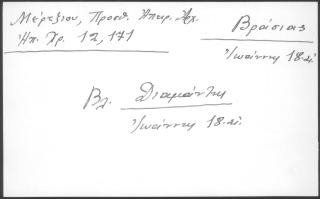 Μέρτζιου, Προσθ. Ηπειρ. Χρ.
Ηπ. Χρ. 12, 171
Βράσιας
Ιωάννης 18. αἰ.
Βλ. Διαμάντης
Ιωάννης 18. αἰ.